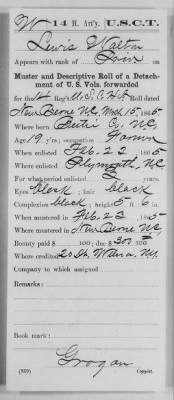 W 14 H. Art'y, U.S.C.T.
Lewis Walton
Appears with rank of Priv on
Muster and Descriptive Roll of a Detach-
ment of U. S. Vols. forwarded
for the 14 Reg't U.S.C.H.A. Roll dated
New Berne N.C., Mch 15, 1865.
Where born Bertie Co, N.C.
Age 19 y'rs; occupation Farmer
When enlisted Feb. 22, 1865
Where enlisted Plymouth, N.C.
For what period enlisted years
Eyes black; hair black
Complexion black; height 5 ft. 6 in.
When mustered in Feb. 22, 1865
Where mustered in New Berne N.C.
Bounty paid $ 100; due $ 300 100
Where credited 20 Dt.
Company to which assigned
Remarks:
Book mark:
Grogan
(339) Copyist.